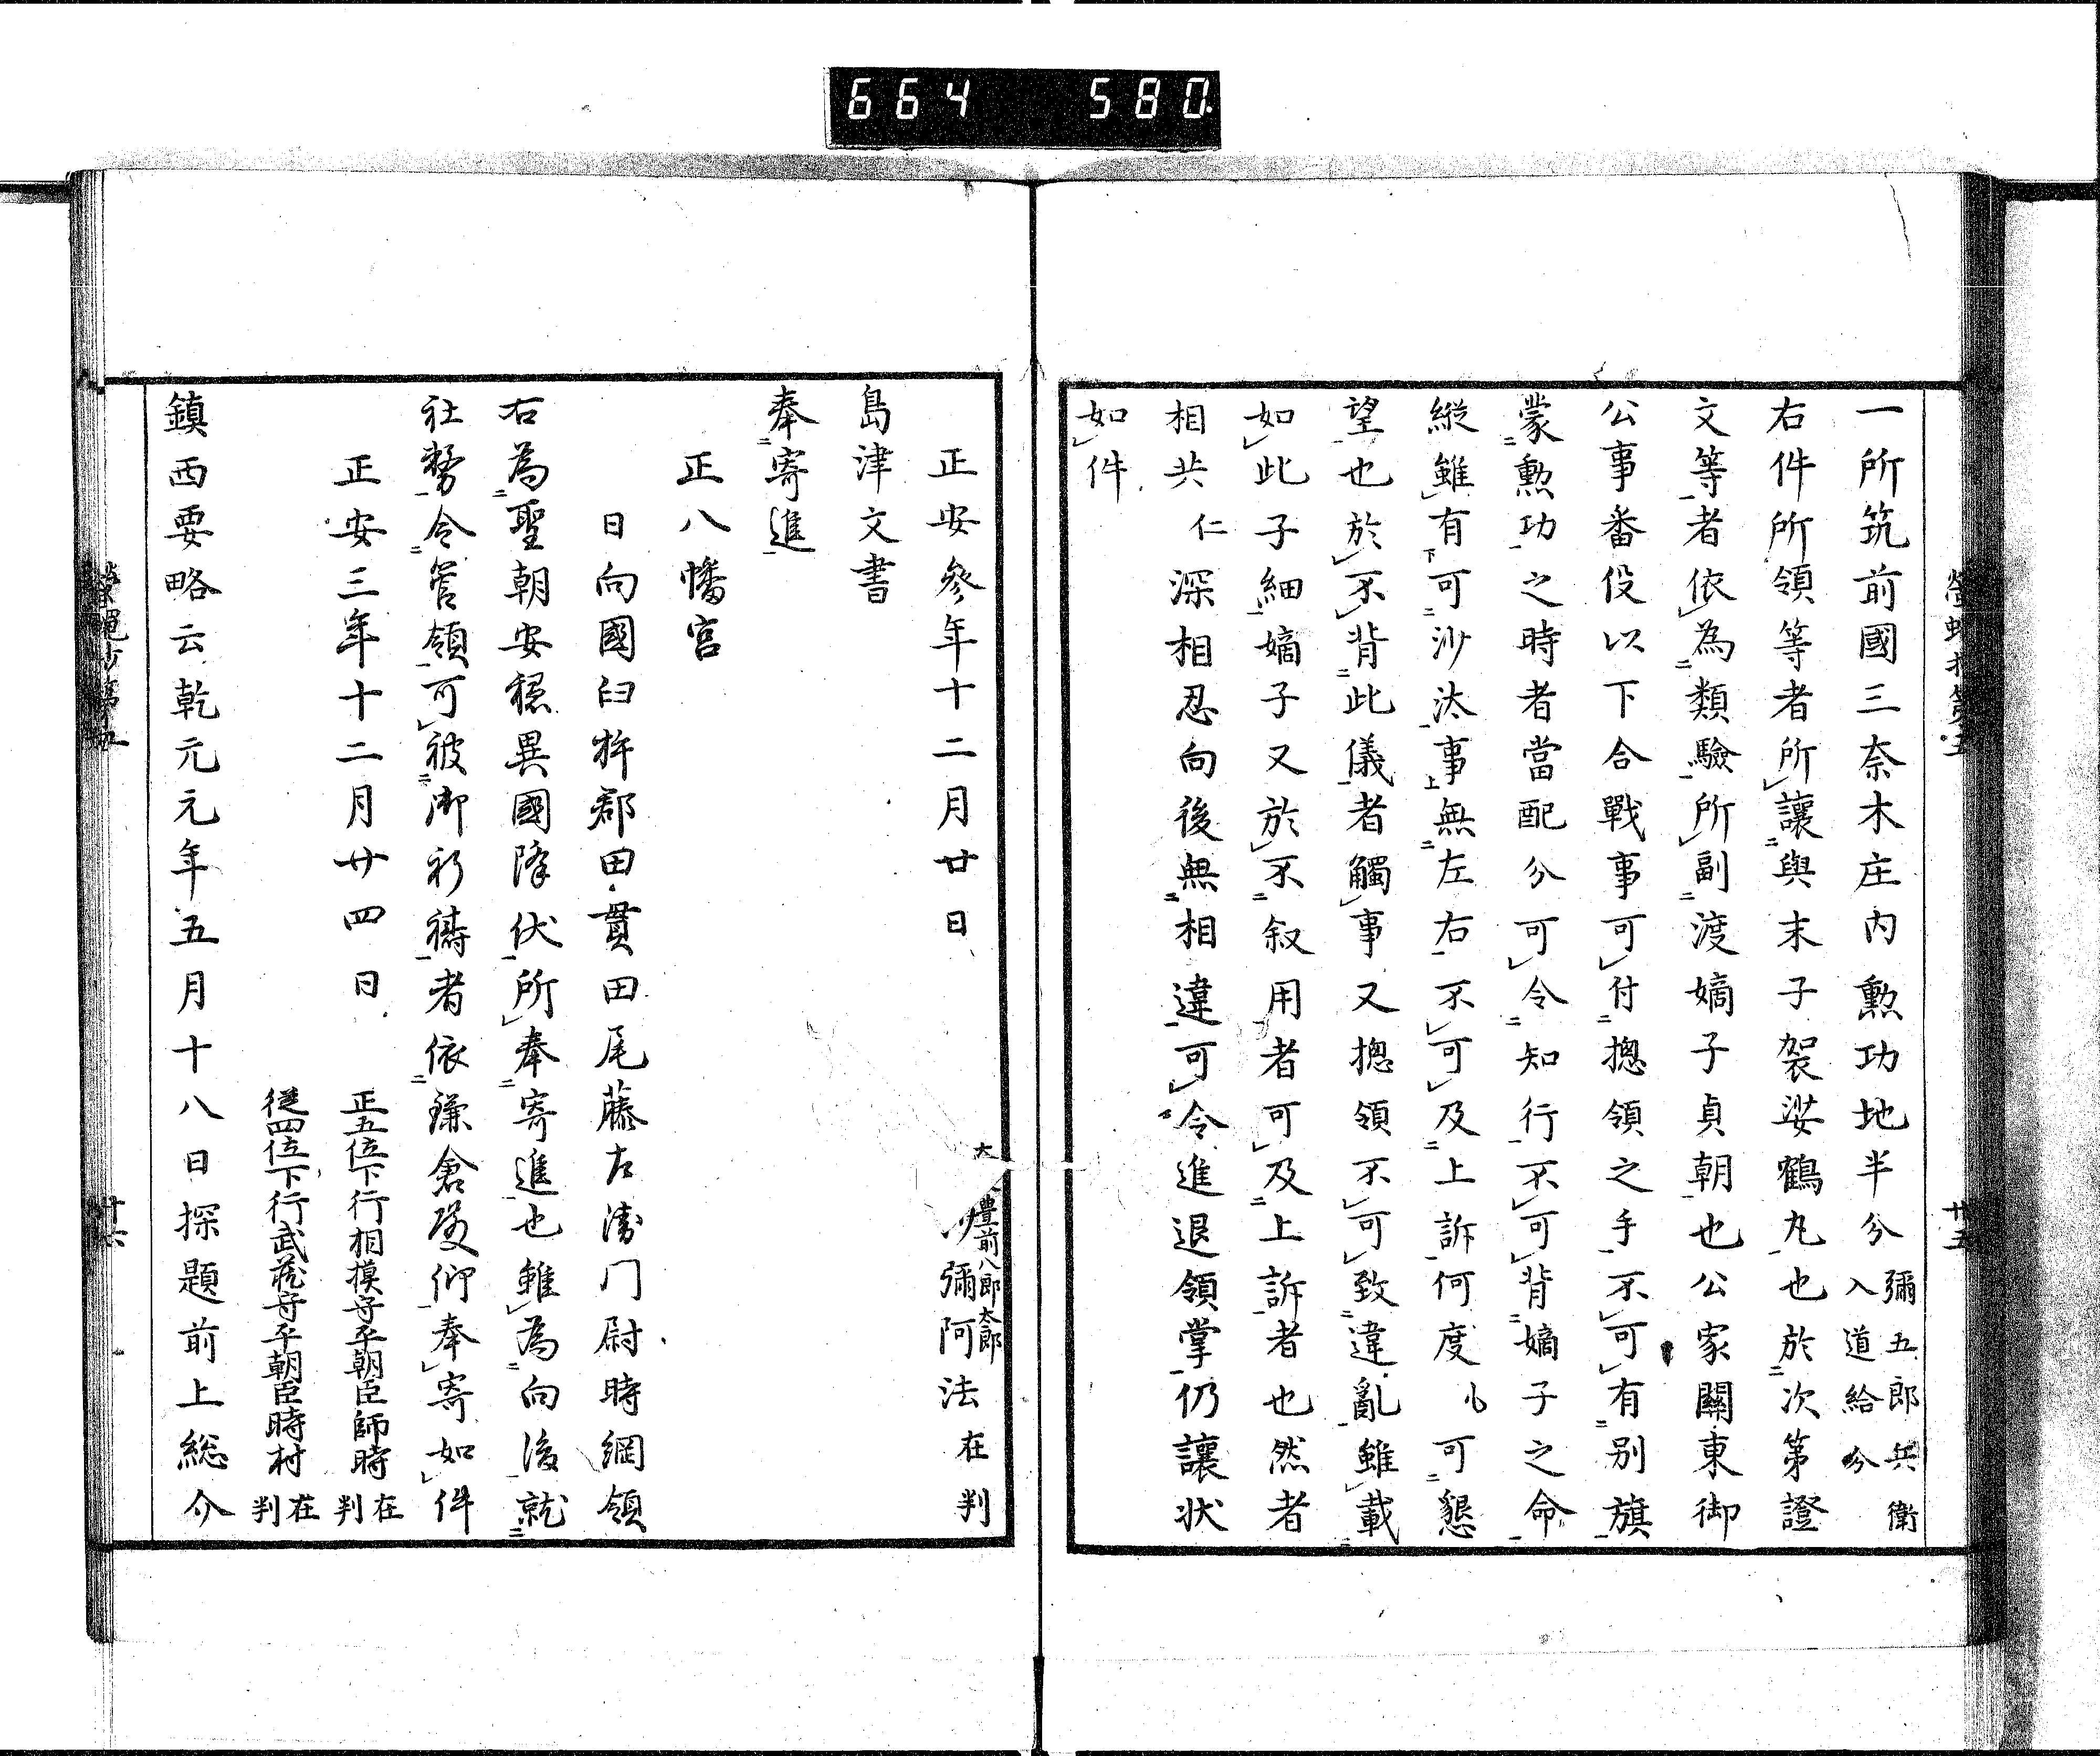 664 580
一所筑前國三奈木庄内勲功地半分彌五郎兵衛入道給分
右件所領等者所讓與末子袈裟鶴丸也於次第證
文等者依為類驗所副渡嫡子貞朝也公家關東御
公事番役以下合戰事可付摠領之手不可有別旗
蒙勲功之時者當配分可令知行不可背嫡子之命
縱雖有可沙汰事無左右不可及上訴何度も可懇
望也於不背此儀者觸事又摠領不可致違亂雖載
如此子細嫡子又於不叙用者可及上訴者也然者
相共仁深相忍向後無相違可令進退領掌仍讓状
如件
廿五
正安參年十二月廿日
豊前八郎太郎
彌阿法在判
島津文書
奉寄進
正八幡宮
日向國臼杵郡田貫田尾藤左衛门尉時綱領
右為聖朝安穏異國降伏所奉寄進也雖為向後就
社務令管領可被御祈禱者依鎌倉殿仰奉寄如件
正安三年十二月廿四日
正五位下行相摸守平朝臣師時在判
従四位下行武蔵守平朝臣時村在判
鎮西要略云乾元元年五月十八日探題前上総介